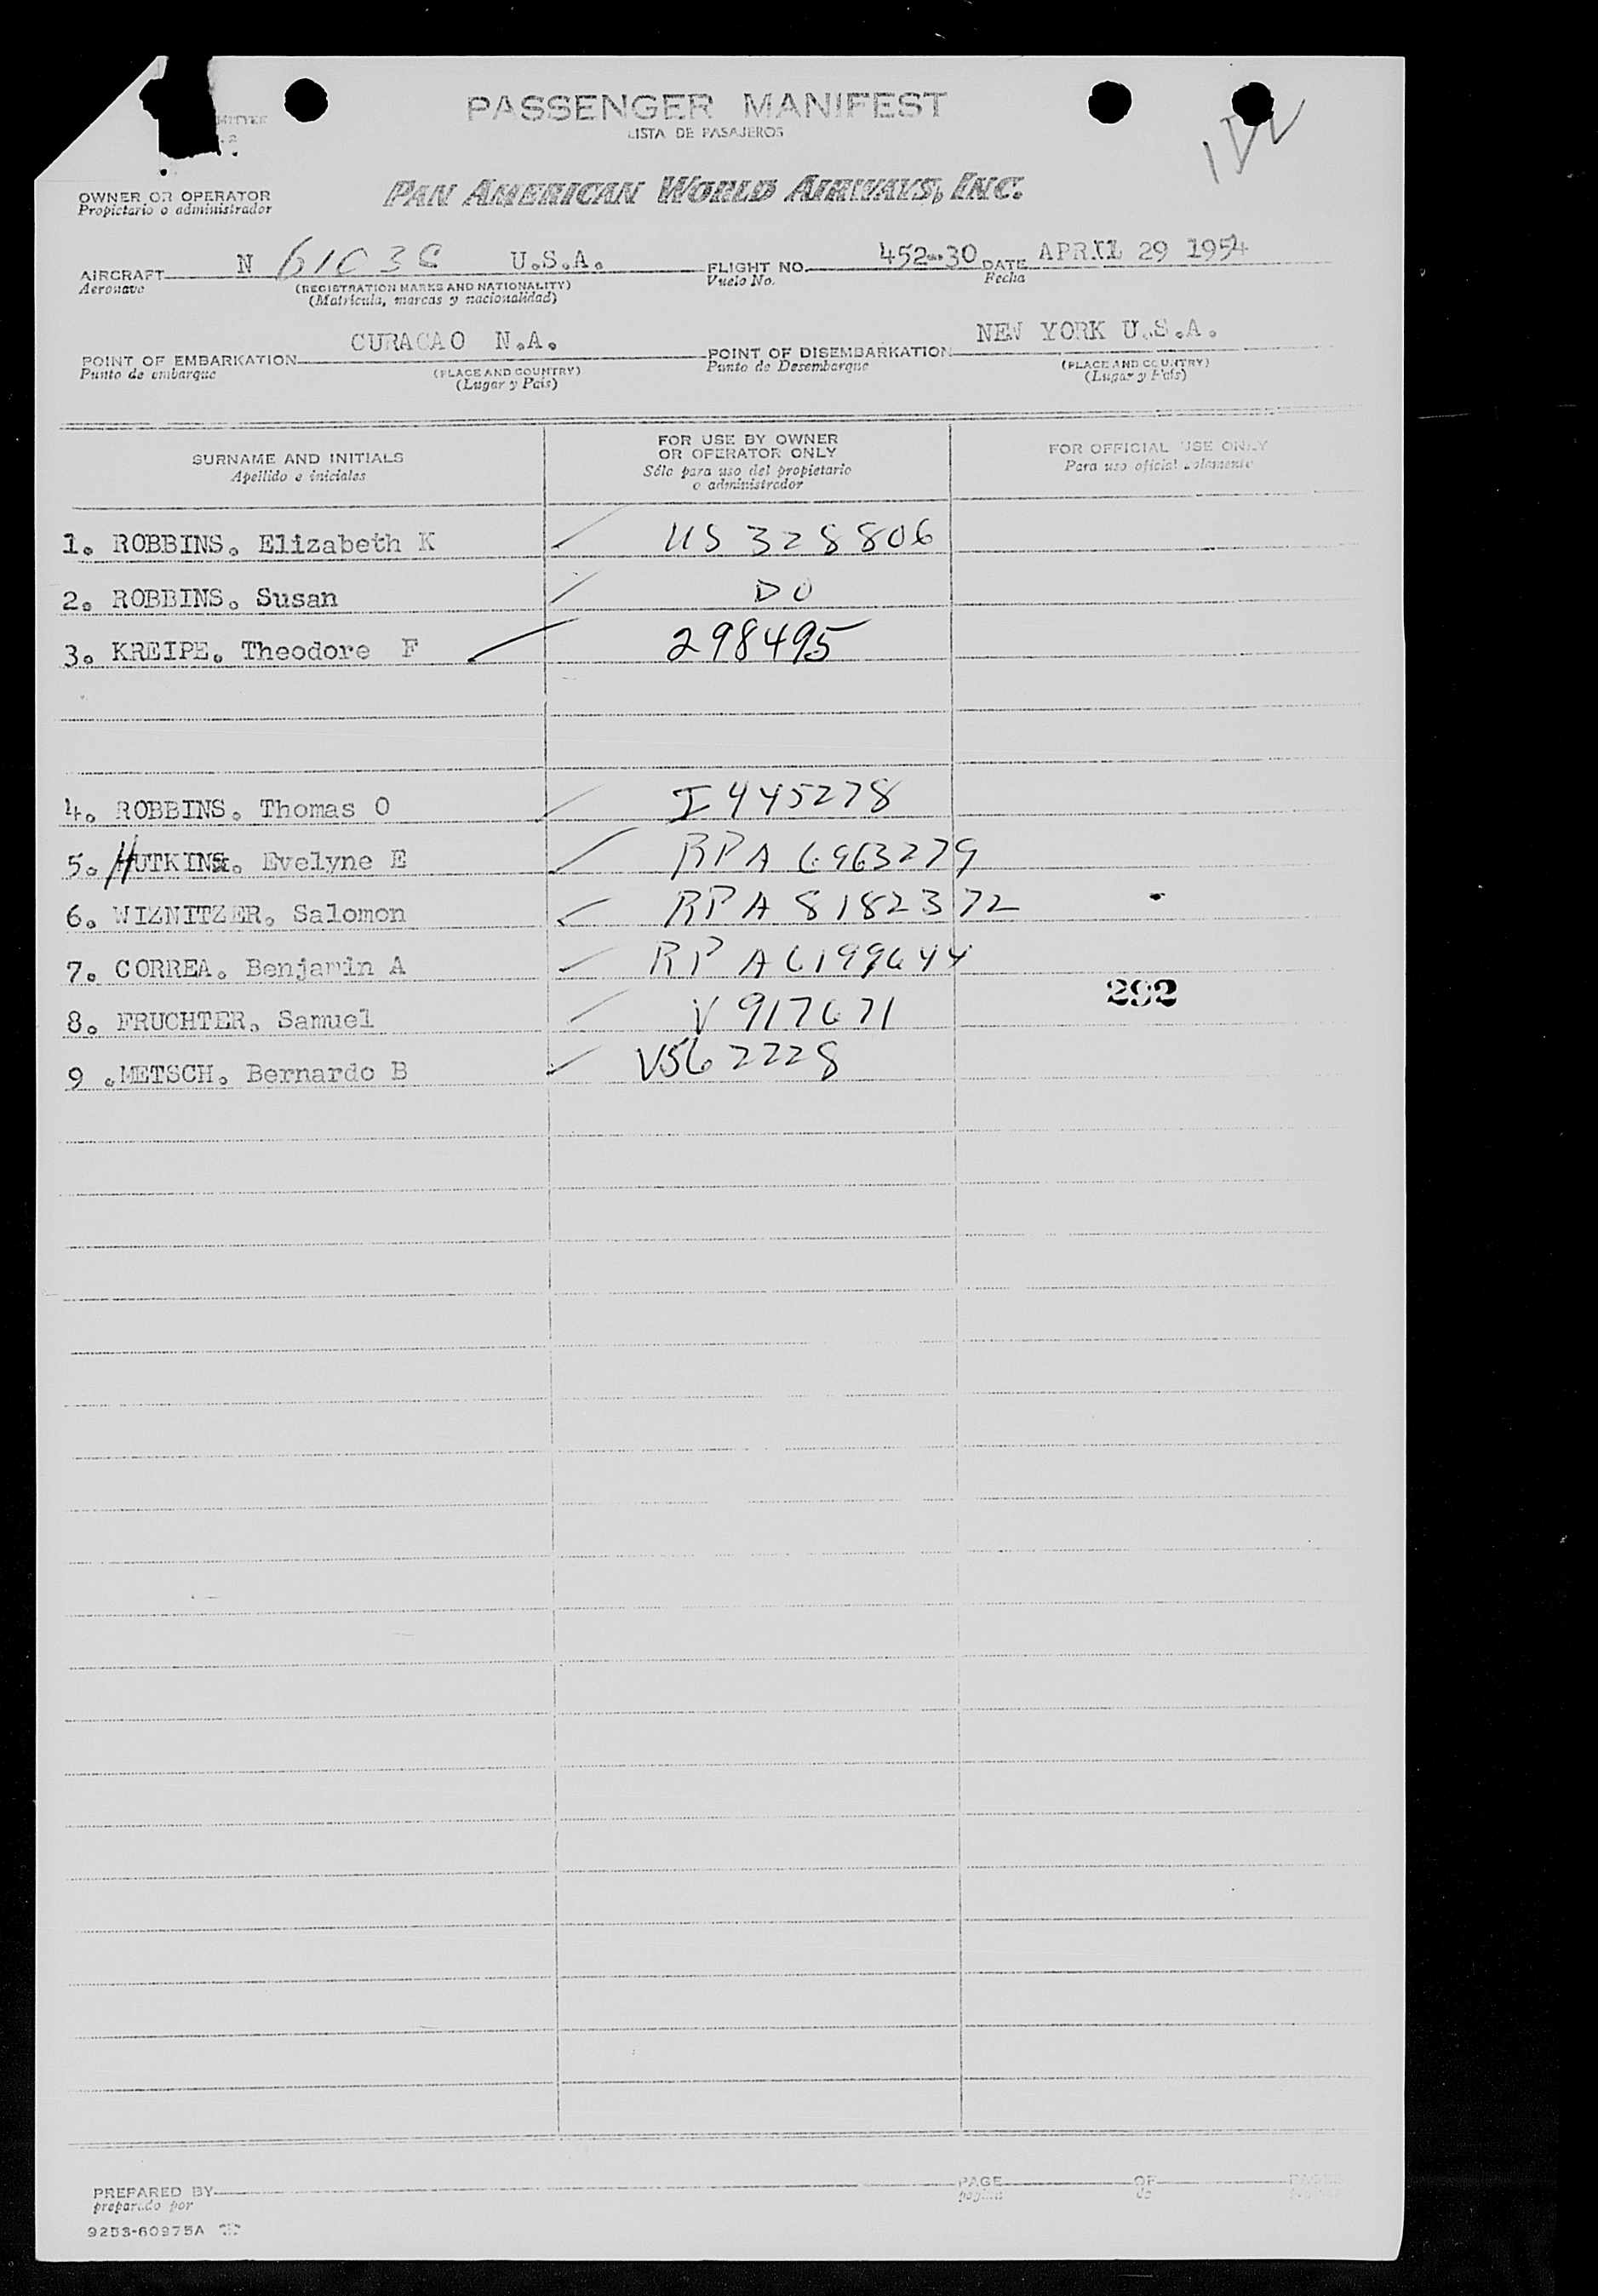 PASSENGER MANIFEST
LISTA DE PASAJEROS
OWNER OR OPERATOR
Propietario o administrador
PAN AMERICAN WORLD AIRWAYS, INC.
AIRCRAFT N U.S.A. FLIGHT NO. 452-30 DATE APRIL 29 1954
Aeronave (REGISTRATION MARKS AND NATIONALITY) Vuelo No. Fecha
(Matrícula, marcas y nacionalidad)
POINT OF EMBARKATION CURACAO N.A. POINT OF DISEMBARKATION NEW YORK U.S.A.
Punto de embarque (PLACE AND COUNTRY) Punto de Desembarque (PLACE AND COUNTRY)
(Lugar y País) (Lugar y País)
SURNAME AND INITIALS
Apellido e iniciales
FOR USE BY OWNER
OR OPERATOR ONLY
Sólo para uso del propietario
o administrador
FOR OFFICIAL USE ONLY
Para uso oficial solamente
1. ROBBINS. Elizabeth K US 328806
2. ROBBINS. Susan DO
3. KREIPE. Theodore F 298495
4. ROBBINS. Thomas O I 445278
5. HUTKINS. Evelyne E RPA 6963279
6. WIZNITZER. Salomon RPA 8182372
7. CORREA. Benjamin A RP A6199644
8. FRUCHTER. Samuel V 917671
292
9 .METSCH. Bernardo B V562228
PREPARED BY PAGE OF
preparado por página de
9253-60975A